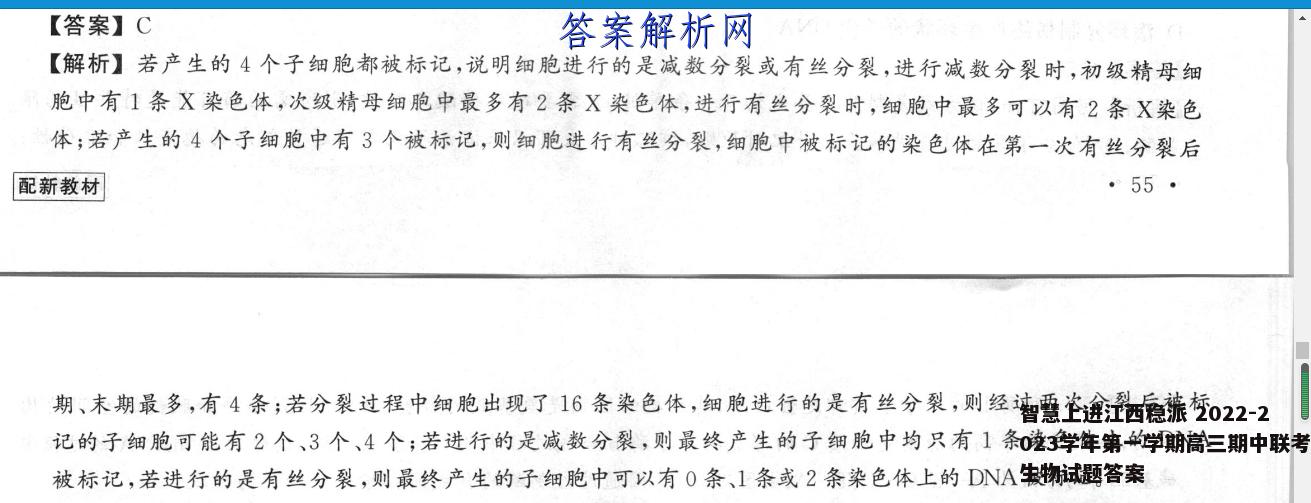 【答案】C
答案解析网
【解析】若产生的 4 个子细胞都被标记,说明细胞进行的是减数分裂或有丝分裂,进行减数分裂时,初级精母细
胞中有 1 条 X 染色体,次级精母细胞中最多有 2 条 X 染色体,进行有丝分裂时,细胞中最多可以有 2 条 X染色
体;若产生的 4 个子细胞中有 3 个被标记,则细胞进行有丝分裂,细胞中被标记的染色体在第一次有丝分裂后
配新教材
· 55 ·
期、末期最多,有 4 条;若分裂过程中细胞出现了 16 条染色体,细胞进行的是有丝分裂,则经过两次分裂后被标
记的子细胞可能有 2 个、3 个、4 个;若进行的是减数分裂,则最终产生的子细胞中均只有 1 条染色体上的 DNA
被标记,若进行的是有丝分裂,则最终产生的子细胞中可以有 0 条、1 条或 2 条染色体上的 DNA
智慧上进江西稳派 2022-2
023学年第一学期高三期中联考
生物试题答案